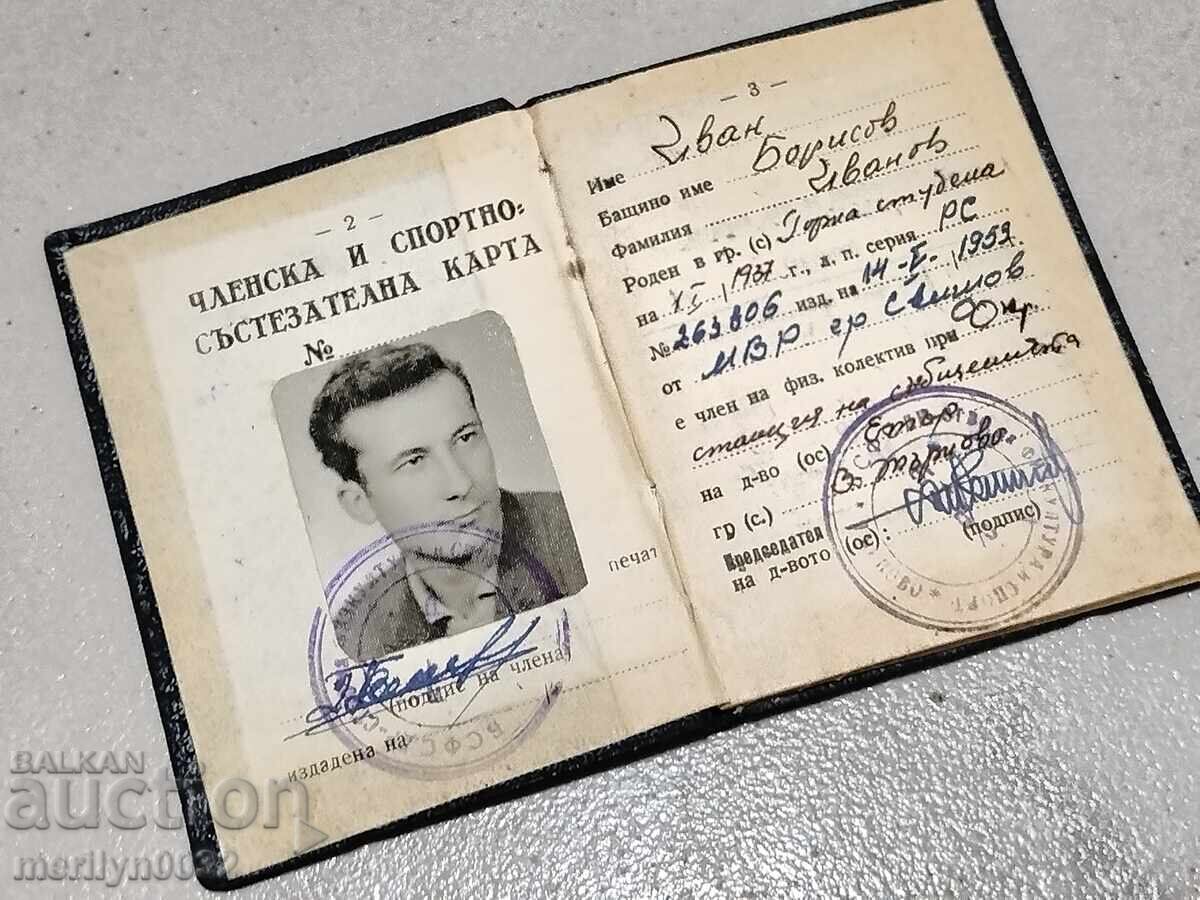 — 2 —
ЧЛЕНСКА И СПОРТНО-
СЪСТЕЗАТЕЛНА КАРТА
№
печат
(подпис на члена)
издадена на
БСФС
— 3 —
Име Иван
Бащино име Борисов
Фамилия Иванов
Роден в гр. (с) Горна студена
на 1937 г., д. п. серия РС
№ 263806 изд. на 14-I-1959
от МВР гр Свищов
е член на физ. колектив при Окр.
станция на
на д-во (ос) Етър
гр (с.) В. Търново
Председател
на д-вото (ос):
(подпис)
BALKAN
auction
merilyn0032